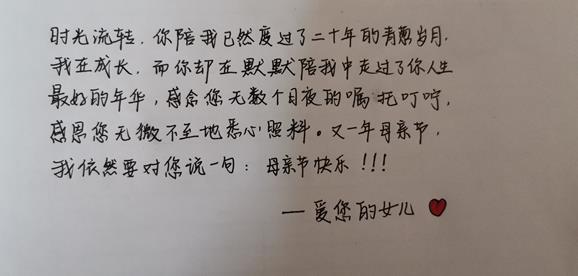 时光流转，你陪我已然度过了二十年的青葱岁月.
我在成长，而你却在默默陪我中走过了你人生
最好的年华，感念您无数个日夜的嘱托叮咛，
感恩您无微不至地悉心照料。又一年母亲节，
我依然要对您说一句：母亲节快乐！！！
— 爱您的女儿